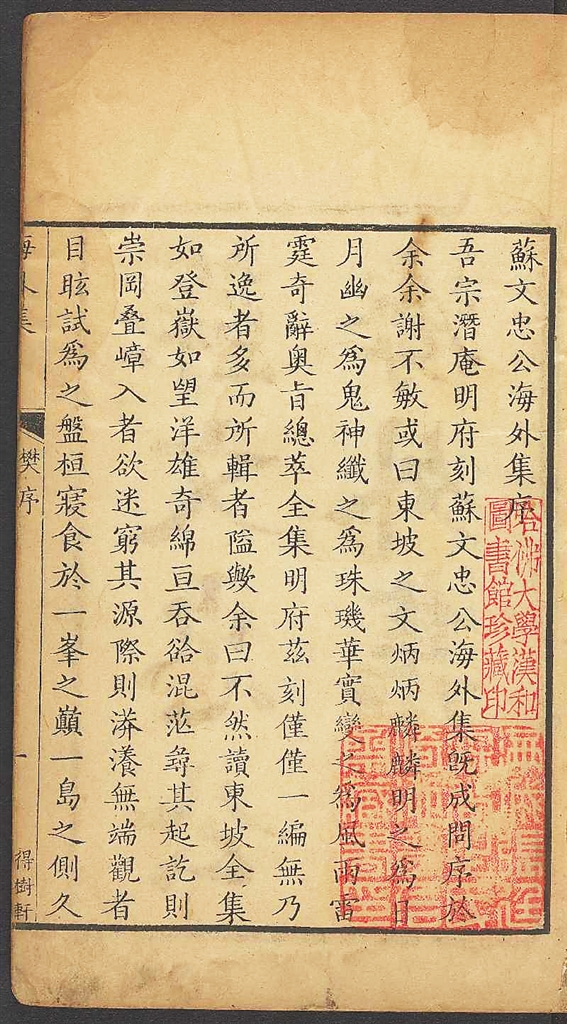 蘇文忠公海外集序
吾宗潛庵明府刻蘇文忠公海外集既成問序於
余余謝不敏或曰東坡之文炳炳麟麟明之為日
月幽之為鬼神纖之為珠璣華實變之為風雨雷
霆奇辭奧旨總萃全集明府茲刻僅僅一編無乃
所逸者多而所輯者隘歟余曰不然讀東坡全集
如登嶽如望洋雄奇綿亘吞欱混茫尋其起訖則
崇岡疊嶂入者欲迷窮其源際則漭瀁無端觀者
目眩試為之盤桓寢食於一峯之巔一島之側久
海外集
樊序
一
得樹軒
哈佛大學漢和
圖書館珍藏印